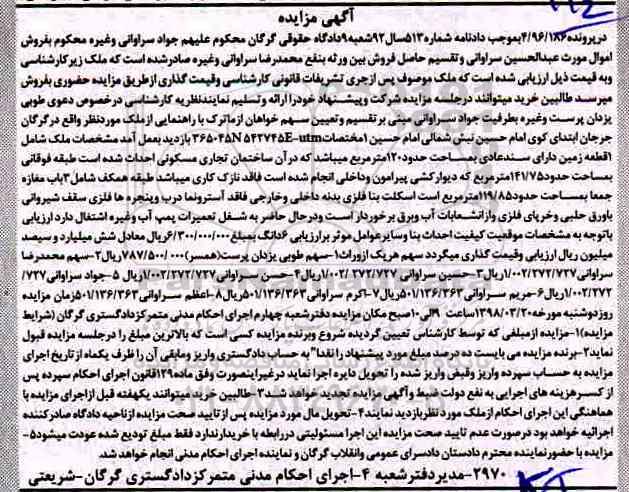 آگهی مزایده
در پرونده ۴/۹۶/۱۸۶ بموجب دادنامه شماره ۵۱۳ سال ۹۲ شعبه ۹ دادگاه حقوقی گرگان محکوم علیهم جواد سراوانی وغیره محکوم بفروش
اموال مورث عبدالحسین سراوانی و تقسیم حاصل فروش بین ورثه بنفع محمدرضا سراوانی وغیره صادرشده است که ملک زیر کارشناسی
وبه قیمت ذیل ارزیابی شده است که ملک موصوف پس ازجری تشریفات قانونی کارشناسی وقیمت گذاری ازطریق مزایده حضوری بفروش
میرسد طالبین خرید میتوانند درجلسه مزایده شرکت وپیشنهاد خودرا ارائه وتسلیم نمایندنظریه کارشناسی درخصوص دعوی طوبی
یزدان پرست وغیره بطرفیت جواد سراوانی مبنی برتقسیم وتعیین سهم خواهان ازماترک با راهنمایی ازملک موردنظر واقع درگرگان
جرجان ابتدای کوی امام حسین نبش شمالی امام حسین ۱مختصات ۳۶۵۰۴۵N ۵۴۲۷۴۵E-utm بازدید بعمل آمد مشخصات ملک شامل
۱قطعه زمین دارای سندعادی بمساحت حدود۱۲۰مترمربع میباشد که در آن ساختمان تجاری مسکونی احداث شده است طبقه فوقانی
بمساحت حدود۱۴۱/۷۵مترمربع که دیوارکشی پیرامون وداخلی انجام شده است فاقد نازک کاری میباشد طبقه همکف شامل۳باب مغازه
جمعا بمساحت حدود۱۱۹/۸۵مترمربع است اسکلت بنا فلزی بدنه داخلی وخارجی فاقد آسترونما درب وپنجره ها فلزی سقف شیروانی
باورق حلبی وخرپای فلزی وازانشعابات آب وبرق برخوردار است ودرحال حاضر به شغل تعمیرات پمپ آب وغیره اشتغال دارد ارزیابی
باتوجه به مشخصات موقعیت کیفیت احداث بنا وسایرعوامل موثر برارزیابی ۶دانگ بمبلغ ۶/۳۰۰/۰۰۰/۰۰۰ریال معادل شش میلیارد و سیصد
میلیون ریال ارزیابی وقیمت گذاری میگردد سهم هریک ازوراث۱-سهم طوبی یزدان پرست(همسر)۷۸۷/۵۰۰/۰۰۰ریال۲-سهم محمدرضا
سراوانی۱/۰۰۲/۲۷۲/۷۲۷ریال۳-حسین سراوانی۱/۰۰۲/۲۷۲/۷۲۷ریال۴-حسن سراوانی۱/۰۰۲/۲۷۲/۷۲۷ریال ۵-جواد سراوانی/۷۲۷
۱/۰۰۲/۲۷۲ریال۶-مریم سراوانی۵۰۱/۱۳۶/۳۶۳ریال۷-اکرم سراوانی۵۰۱/۱۳۶/۳۶۳ریال۸-اعظم سراوانی۵۰۱/۱۳۶/۳۶۳زمان مزایده
روزدوشنبه مورخه۱۳۹۸/۰۳/۲۰ساعت ۹الی۱۰صبح مکان مزایده دفترشعبه چهارم اجرای احکام مدنی متمرکزدادگستری گرگان (شرایط
مزایده)۱-مزایده ازمبلغی که توسط کارشناس تعیین گردیده شروع وبرنده مزایده کسی است که بالاترین مبلغ را درجلسه مزایده قبول
نماید۲-برنده مزایده می بایست ده درصد مبلغ مورد پیشنهاد را نقدا" به حساب دادگستری واریز ومابقی آن را ظرف یکماه از تاریخ اجرای
مزایده به حساب سپرده واریز وقبض واریز شده را تحویل دایره اجرا نماید درغیراینصورت وفق ماده۱۲۹قانون اجرای احکام سپرده پس
از کسرهزینه های اجرایی به نفع دولت ضبط وآگهی مزایده تجدید خواهد شد.۳-طالبین خرید میتوانند یکهفته قبل ازاجرای مزایده با
هماهنگی این اجرای احکام ازملک مورد نظر بازدید نمایند۴-تحویل مال مورد مزایده پس ازتایید صحت مزایده ازناحیه دادگاه صادرکننده
اجرائیه خواهد بود درصورت عدم تایید صحت مزایده این اجرا مسئولیتی دررابطه با خریدارندارد فقط مبلغ تودیع شده عودت میشود۵-
مزایده با حضورنماینده محترم دادستان دادسرای عمومی وانقلاب گرگان و نماینده اجرای احکام مدنی انجام خواهد شد.
۲۹۷۰-مدیردفترشعبه ۴-اجرای احکام مدنی متمرکزدادگستری گرگان-شریعتی